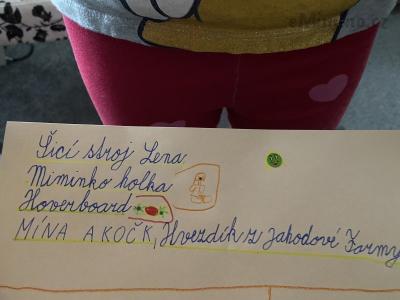 eMimino.cz
Šicí stroj Lena
Miminko holka
Hoverboard
MÍNA A KOČK, Hvezdík z Jahodové Farmy